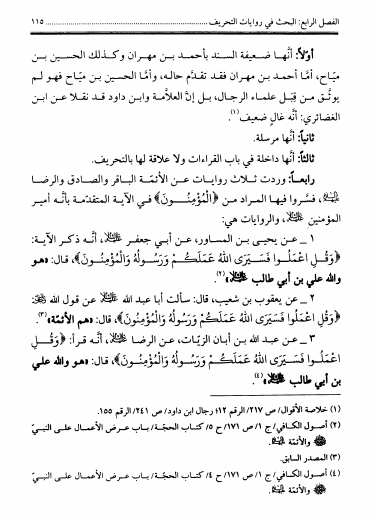 الفصل الرابع: البحث في روايات التحريف ............................................................ ١١٥
أولاً: أنّها ضعيفة السند بأحمد بن مهران وكذلك الحسين بن
ميّاح، أمّا أحمد بن مهران فقد تقدّم حاله، وأمّا الحسين بن مياح فهو لم
يوثّق من قِبَل علماء الرجال، بل إنّ العلاّمة وابن داود قد نقلا عن ابن
الغضائري: أنّه غالٍ ضعيف(١).
ثانياً: أنّها مرسلة.
ثالثاً: أنّها داخلة في باب القراءات ولا علاقة لها بالتحريف.
رابعـاً: وردت ثـلاث روايـات عـن الأئمّـة البـاقر والصـادق والرضـا
، فسّروا فيهـا المـراد مـن ﴿الْمُؤْمِنُـونَ﴾ في الآيـة المتقدّمـة بأنّـه أميـر
المؤمنين ، والروايات هي:
١ _ عـن يحيـى بـن المسـاور، عـن أبـي جعفـر ، أنّـه ذكـر الآيـة:
﴿وَقُلِ اعْمَلُوا فَسَيَرَى اللهُ عَمَلَكُـمْ وَرَسُولُهُ وَالْمُؤْمِنُونَ﴾، قال: «هـو
والله علي بن أبي طالب »(٢).
٢ _ عن يعقوب بن شعيب، قال: سألت أبا عبد الله عن قول الله :
﴿وَقُلِ اعْمَلُوا فَسَيَرَى اللهُ عَمَلَكُمْ وَرَسُولُهُ وَالْمُؤْمِنُونَ﴾، قال: «هم الأئمّة»(٣).
٣ _ عن عبد الله بـن أبان الزيّـات، عـن الرضـا ، أنّـه قـرأ: ﴿وَقُـلِ
اعْمَلُوا فَسَيَرَى اللهُ عَمَلَكُمْ وَرَسُولُهُ وَالْمُؤْمِنُونَ﴾، قال: «هـو والله علي
بن أبي طالب »(٤).
(١) خلاصة الأقوال/ ص ٢١٧/ الرقم ١٢؛ رجال ابن داود/ ص ٢٤١/ الرقم ١٥٥.
(٢) أصـول الكـافي/ ج ١/ ص ١٧١/ ح ٥/ كتاب الحجّـة/ بـاب عـرض الأعمـال علـى النبـيّ
والأئمّة .
(٣) المصدر السابق.
(٤) أصـول الكـافي/ ج ١/ ص ١٧١/ ح ٤/ كتاب الحجّـة/ بـاب عـرض الأعمـال علـى النبـيّ
والأئمّة .